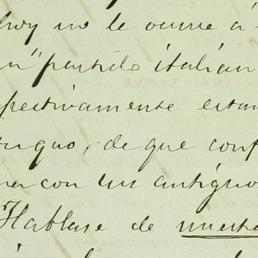 hoy no le ocurre á
un "partido italian
pectivamente estan
tiguo, de que conf
na con un antiguo
Háblase de nuestr